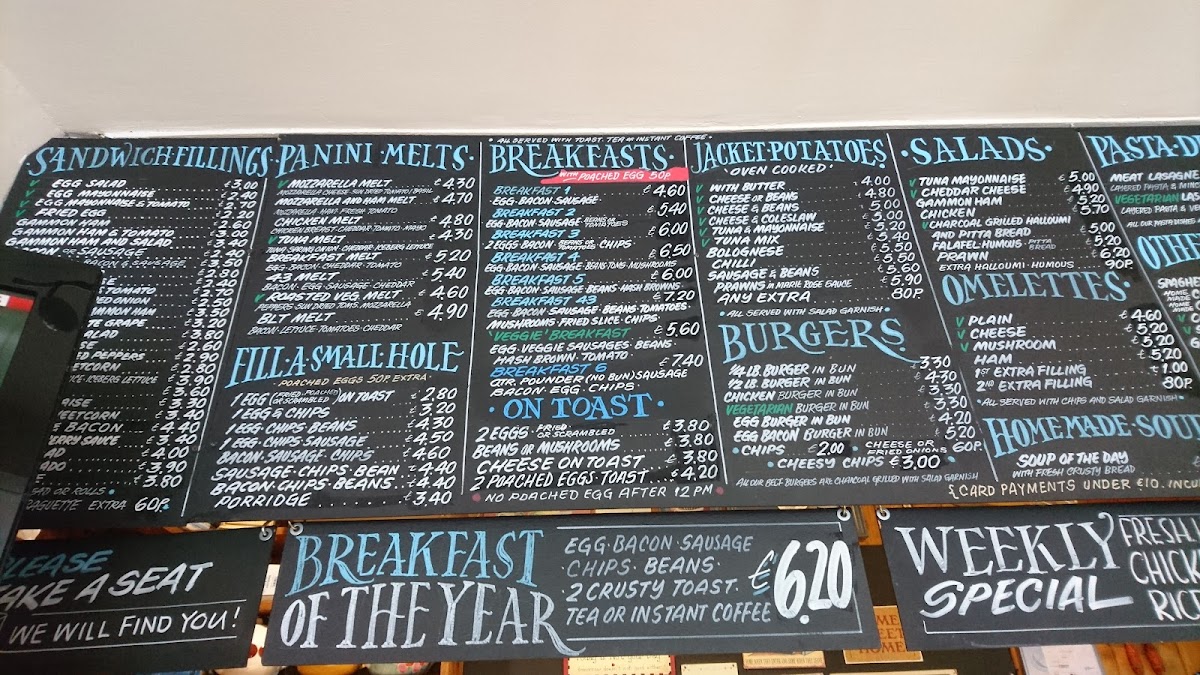 SANDWICH·FILLINGS
V EGG SALAD £3.00
V EGG MAYONNAISE
V EGG MAYONNAISE & TOMATO
V FRIED EGG
GAMMON HAM
GAMMON HAM & TOMATO 3.00
GAMMON HAM AND SALAD
& SAUSAGE
BACON & SAUSAGE
TOMATO
ED ONION
MMON HAM
TE GRAPE
ALAD
ED PEPPERS
EETCORN
ICE·ICEBERG LETTUCE
AISE
EETCORN
E BACON
ERRY SAUCE 3.40
AD £4.00
ADO £3.90
£3.80
SAD OR ROLLS
BAGUETTE EXTRA 60P.
PANINI·MELTS·
V MOZZARELLA MELT £4.30
MOZZARELLA CHEESE·SUN DRIED TOMATO/BASIL
MOZZARELLA AND HAM MELT £4.70
MOZZARELLA·HAM·FRESH TOMATO
CHICKEN MELT £4.80
CHICKEN BREAST·CHEDDAR·TOMATO·MAYO
V TUNA MELT £4.30
TUNA·SPRING ONION·CHEDDAR·ICEBERG LETTUCE
BREAKFAST MELT £5.20
EGG·BACON·CHEDDAR·TOMATO
4S MELT £5.40
BACON·EGG·SAUSAGE·CHEDDAR
V ROASTED VEG. MELT £4.60
PEPPERS·SUN DRIED TOMS.MOZZARELLA
BLT MELT £4.90
BACON·LETTUCE·TOMATOES·CHEDDAR
FILL·A·SMALL·HOLE
·POACHED EGGS 50P. EXTRA·
1 EGG (FRIED·POACHED OR SCRAMBLED) ON TOAST £2.80
1 EGG & CHIPS £3.20
1 EGG·CHIPS·BEANS £4.30
1 EGG·CHIPS·SAUSAGE £4.50
BACON·SAUSAGE·CHIPS £4.60
SAUSAGE·CHIPS·BEAN £4.40
BACON·CHIPS·BEANS £4.40
PORRIDGE £3.40
·ALL SERVED WITH TOAST. TEA OR INSTANT COFFEE·
BREAKFASTS·
WITH POACHED EGG 50P
BREAKFAST 1 £4.60
EGG·BACON·SAUSAGE
BREAKFAST 2 £5.40
EGG·BACON·SAUSAGE·BEANS OR TOMATOES
BREAKFAST 3 £6.00
2 EGGS·BACON·BEANS OR TOMATOES·CHIPS
BREAKFAST 4 £6.50
EGG·BACON·SAUSAGE·BEANS·TOMS·MUSHROOMS
BREAKFAST 5 £6.00
EGG·BACON·SAUSAGE·BEANS·HASH BROWNS
BREAKFAST 43 £7.20
EGG·BACON·SAUSAGE·BEANS·TOMATOES
MUSHROOMS·FRIED SLICE·CHIPS·
VEGGIE BREAKFAST £5.60
EGG·VEGGIE SAUSAGES·BEANS·
HASH BROWN·TOMATO
BREAKFAST 6 £7.40
QTR. POUNDER (NO BUN) SAUSAGE
BACON·EGG·CHIPS·
·ON TOAST·
2 EGGS·FRIED OR SCRAMBLED £3.80
BEANS OR MUSHROOMS £3.80
CHEESE ON TOAST £3.80
2 POACHED EGGS·TOAST £4.20
·NO POACHED EGG AFTER 12 PM·
JACKET·POTATOES
·OVEN COOKED·
V WITH BUTTER 4.00
V CHEESE OR BEANS 4.80
V CHEESE & BEANS 5.00
V CHEESE & COLESLAW 5.00
V TUNA & MAYONNAISE 5.20
V TUNA MIX 5.40
BOLOGNESE 5.50
CHILLI 5.50
SAUSAGE & BEANS 5.60
PRAWNS IN MARIE ROSE SAUCE 5.90
ANY EXTRA 80P.
·ALL SERVED WITH SALAD GARNISH·
BURGERS
1/4 LB. BURGER IN BUN 3.30
1/2 LB. BURGER IN BUN 4.30
CHICKEN BURGER IN BUN 3.30
VEGETARIAN BURGER IN BUN 3.30
EGG BURGER IN BUN 4.20
EGG BACON BURGER IN BUN 5.20
·CHIPS £2.00 CHEESE OR FRIED ONIONS 60P.
·CHEESY CHIPS £3.00·
ALL OUR BEEF BURGERS ARE CHARCOAL GRILLED WITH SALAD GARNISH
·SALADS·
V TUNA MAYONNAISE 5.00
V CHEDDAR CHEESE 4.90
GAMMON HAM 5.20
CHICKEN 5.70
V CHARCOAL GRILLED HALLOUMI
AND PITTA BREAD 5.00
FALAFEL·HUMOUS·PITTA BREAD 5.20
PRAWN 6.20
EXTRA HALLOUMI·HUMOUS 90P.
OMELETTES·
V PLAIN £4.60
V CHEESE £5.20
V MUSHROOM £5.20
HAM £5.20
1ST EXTRA FILLING £1.00
2ND EXTRA FILLING 80P
·ALL SERVED WITH CHIPS AND SALAD GARNISH·
HOMEMADE·SOU
SOUP OF THE DAY
WITH FRESH CRUSTY BREAD
CARD PAYMENTS UNDER £10. INCU
PASTA·D
MEAT LASAGNE
LAYERED PASTA & MIN
VEGETARIAN LAS
LAYERED PASTA & VE
ALL OUR PASTA DISHES
OTH
SPAGH
PLEASE
TAKE A SEAT
WE WILL FIND YOU!
BREAKFAST
OF THE YEAR
EGG·BACON·SAUSAGE
CHIPS·BEANS·
2 CRUSTY TOAST.
TEA OR INSTANT COFFEE
£6.20
WEEKLY
SPECIAL
FRESH
CHICK
RICE